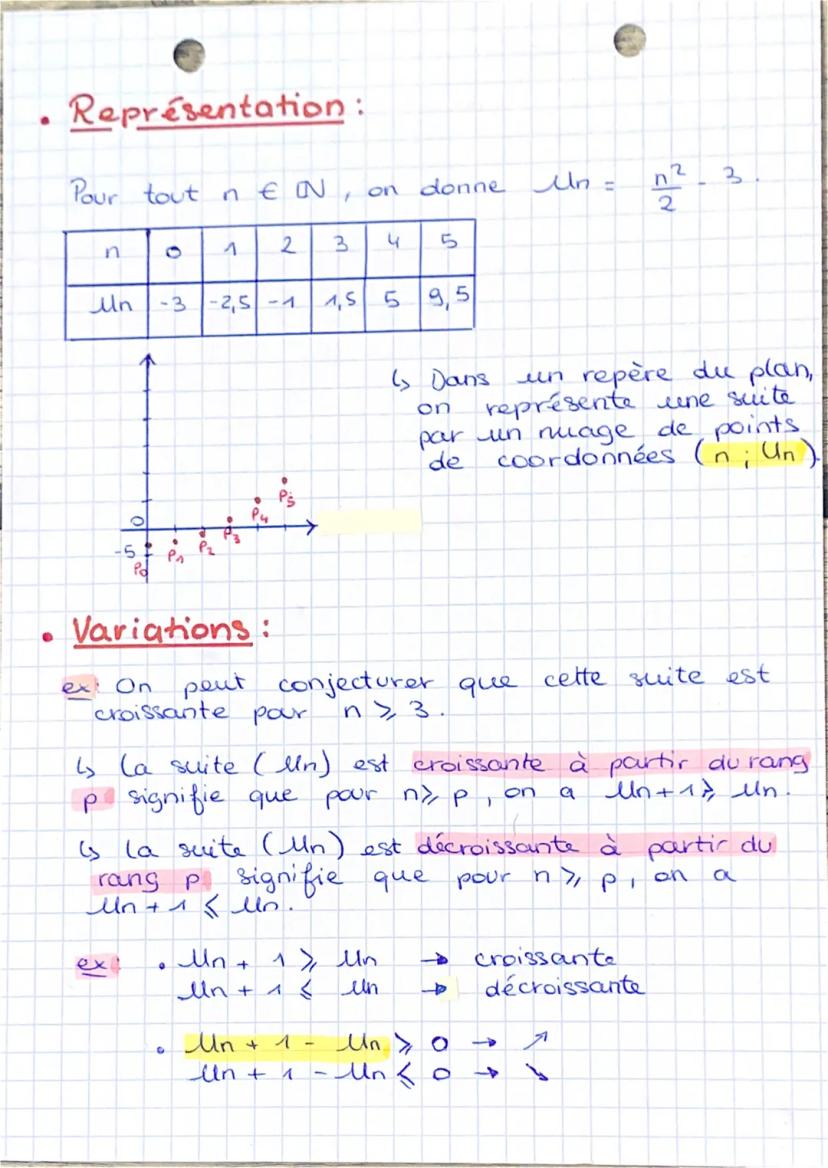 • Représentation :
Pour tout n ∈ ℕ, on donne Un = n²/2 - 3.
n 0 1 2 3 4 5
Un -3 -2,5 -1 1,5 5 9,5
↳ Dans un repère du plan,
on représente une suite
par un nuage de points
de coordonnées (n ; Un).
0
-5
P0 P1 P2 P3 P4 P5
• Variations :
ex: On peut conjecturer que cette suite est
croissante pour n ⩾ 3.
↳ La suite (Un) est croissante à partir du rang
p signifie que pour n ⩾ p, on a Un+1 ⩾ Un.
↳ La suite (Un) est décroissante à partir du
rang p signifie que pour n ⩾ p, on a
Un+1 ⩽ Un.
ex: • Un + 1 ⩾ Un → croissante
Un + 1 ⩽ Un → décroissante
• Un + 1 - Un ⩾ 0 → ↗
Un + 1 - Un ⩽ 0 → ↘